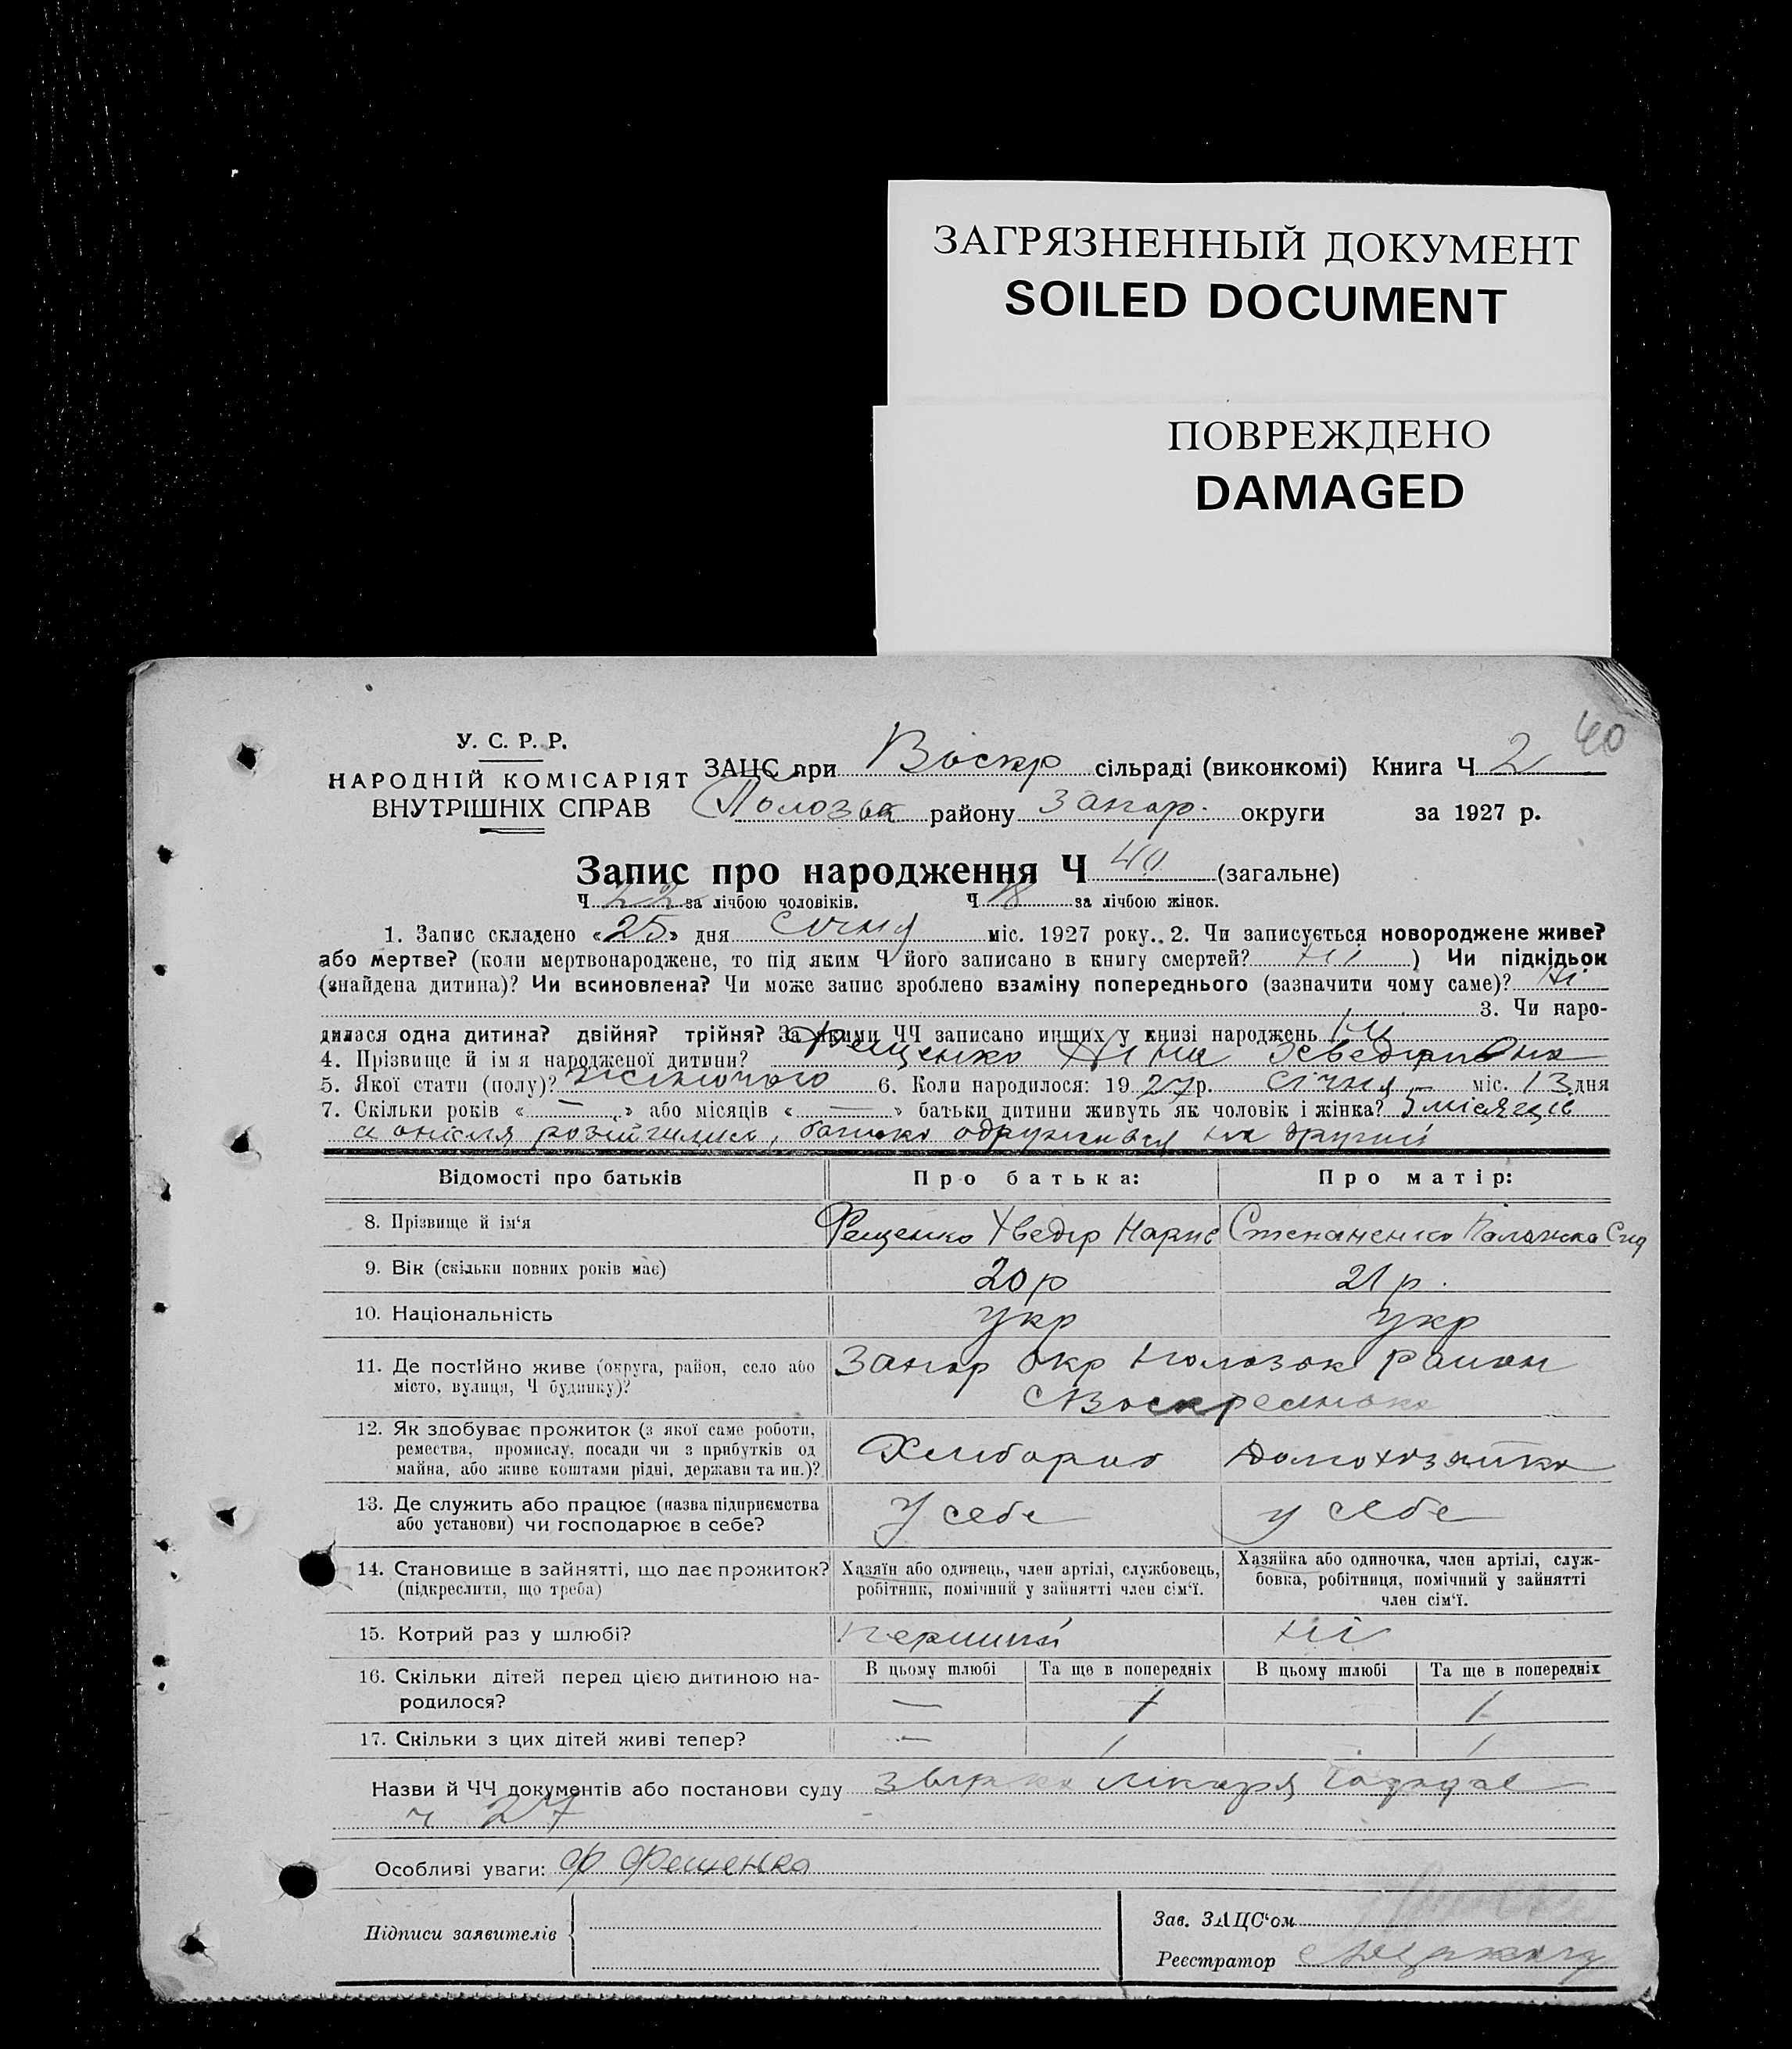 ЗАГРЯЗНЕННЫЙ ДОКУМЕНТ
SOILED DOCUMENT
ПОВРЕЖДЕНО
DAMAGED
40
У. С. Р. Р.
НАРОДНІЙ КОМІСАРІЯТ
ВНУТРІШНІХ СПРАВ
ЗАЦС при Воскр сільраді (виконкомі) Книга Ч 2
району Запор. округи за 1927 р.
Запис про народження Ч 40 (загальне)
Ч 22 за лічбою чоловіків. Ч 18 за лічбою жінок.
1. Запис складено «25» дня Січня міс. 1927 року. 2. Чи записується новороджене живе?
або мертве? (коли мертвонароджене, то під яким Ч його записано в книгу смертей? ні ) Чи підкідьок
(знайдена дитина)? Чи всиновлена? Чи може запис зроблено взаміну попереднього (зазначити чому саме)? Ні
3. Чи наро-
дилася одна дитина? двійня? трійня? За якими ЧЧ записано инших у книзі народжень Ні
4. Прізвище й ім'я народженої дитини? Фещенко
5. Якої стати (полу)? жіночого 6. Коли народилося: 1927 р. січня міс. 13 дня
7. Скільки років « — » або місяців « — » батьки дитини живуть як чоловік і жінка? 5 місяців
а опісля розійшлись, батько одружився на другій
Відомості про батьків Про батька: Про матір:
8. Прізвище й ім'я Фещенко Хведір Карпов Степаненко
9. Вік (скільки повних років має) 20 р 21 р.
10. Національність Укр Укр
11. Де постійно живе (округа, район, село або Запор Окр Полозок район
місто, вулиця, Ч будинку)? Воскресенка
12. Як здобуває прожиток (з якої саме роботи,
ремества, промислу, посади чи з прибутків од Хлібороб Домохозяйка
майна, або живе коштами рідні, держави та ин.)?
13. Де служить або працює (назва підприємства У себе у себе
або установи) чи господарює в себе?
14. Становище в зайнятті, що дає прожиток? Хазяїн або одинець, член артілі, службовець, Хазяйка або одиночка, член артілі, служ-
(підкреслити, що треба) робітник, помічний у зайнятті член сім'ї. бовка, робітниця, помічний у зайнятті
член сім'ї.
15. Котрий раз у шлюбі? перший ні
16. Скільки дітей перед цією дитиною на- В цьому шлюбі Та ще в попередніх В цьому шлюбі Та ще в попередніх
родилося? — 1 1
17. Скільки з цих дітей живі тепер? — 1 1
Назви й ЧЧ документів або постанови суду лікаря
ч 27
Особливі уваги: Ф Фещенко
Підписи заявителів
Зав. ЗАЦС'ом
Реєстратор